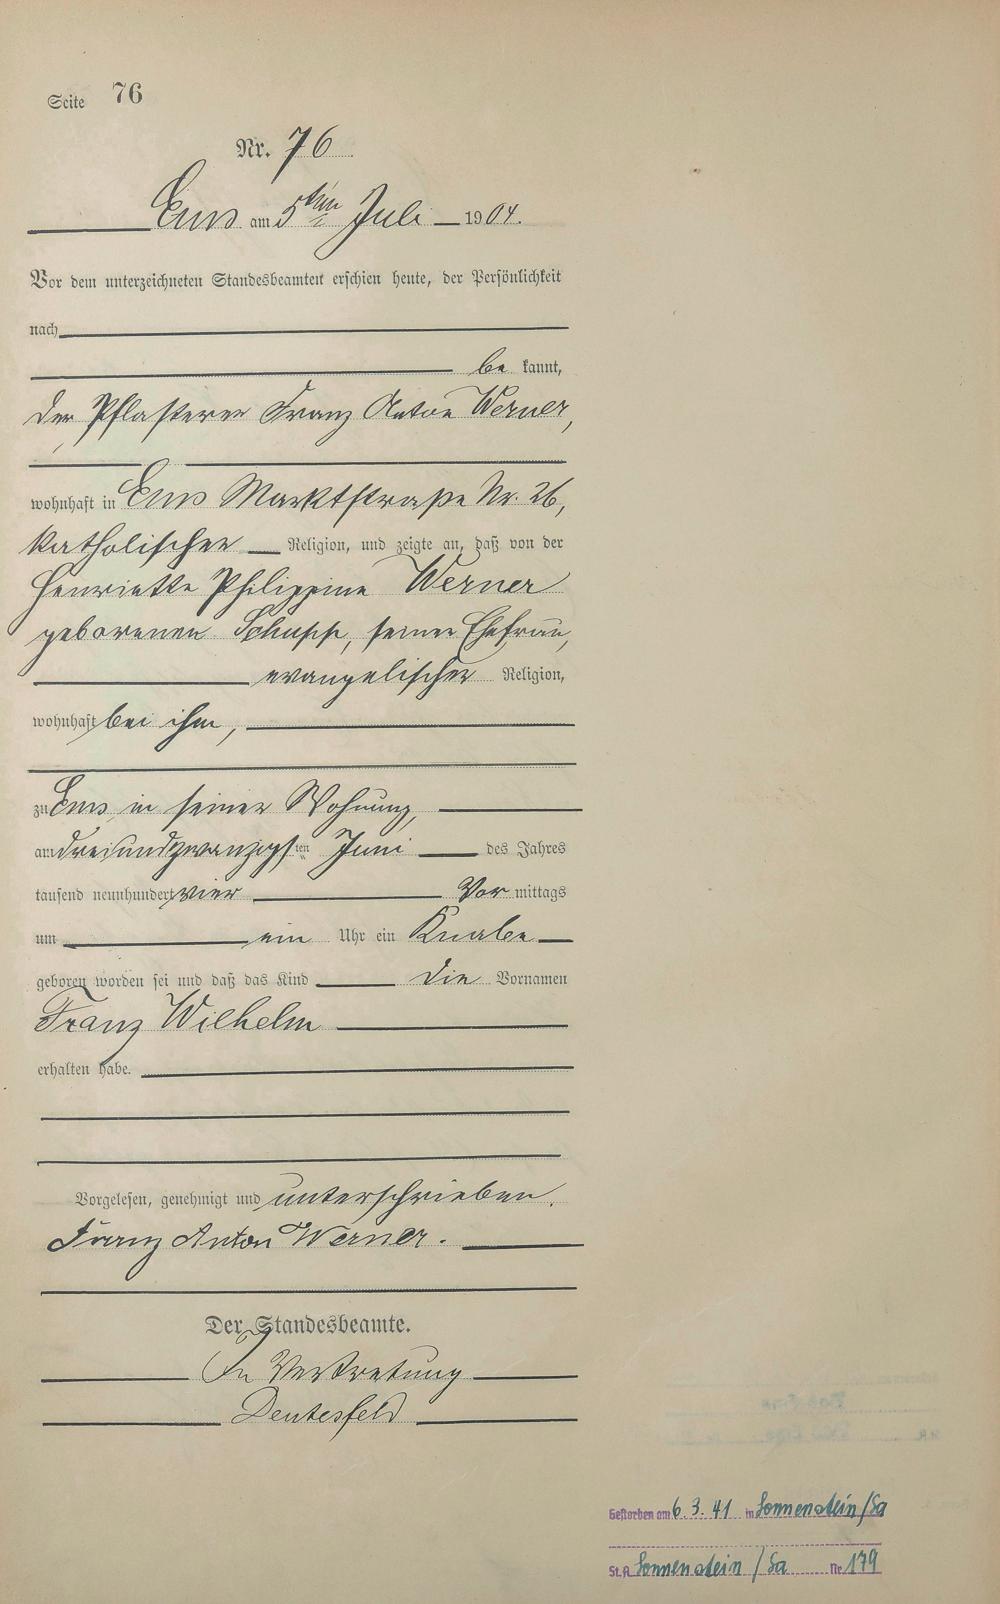 Seite 76
Nr. 76
Ems am 5ten Juli 1904.
Vor dem unterzeichneten Standesbeamten erschien heute, der Persönlichkeit
nach
be kannt,
der Pflasterer Franz Anton Werner,
wohnhaft in Ems Marktstraße Nr. 26,
katholischer Religion, und zeigte an, daß von der
Henriette Philippine Werner
geborenen Schupp, seiner Ehefrau,
evangelischer Religion,
wohnhaft bei ihm,
zu Ems in seiner Wohnung,
am dreiundzwanzigsten Juni des Jahres
tausend neunhundert vier Vor mittags
um ein Uhr ein Knabe
geboren worden sei und daß das Kind die Vornamen
Franz Wilhelm
erhalten habe.
Vorgelesen, genehmigt und unterschrieben.
Franz Anton Werner.
Der Standesbeamte.
In Vertretung
Deutesfeld
Gestorben am 6.3.41 in Sonnenstein/Sa
St.A. Sonnenstein/Sa Nr. 179